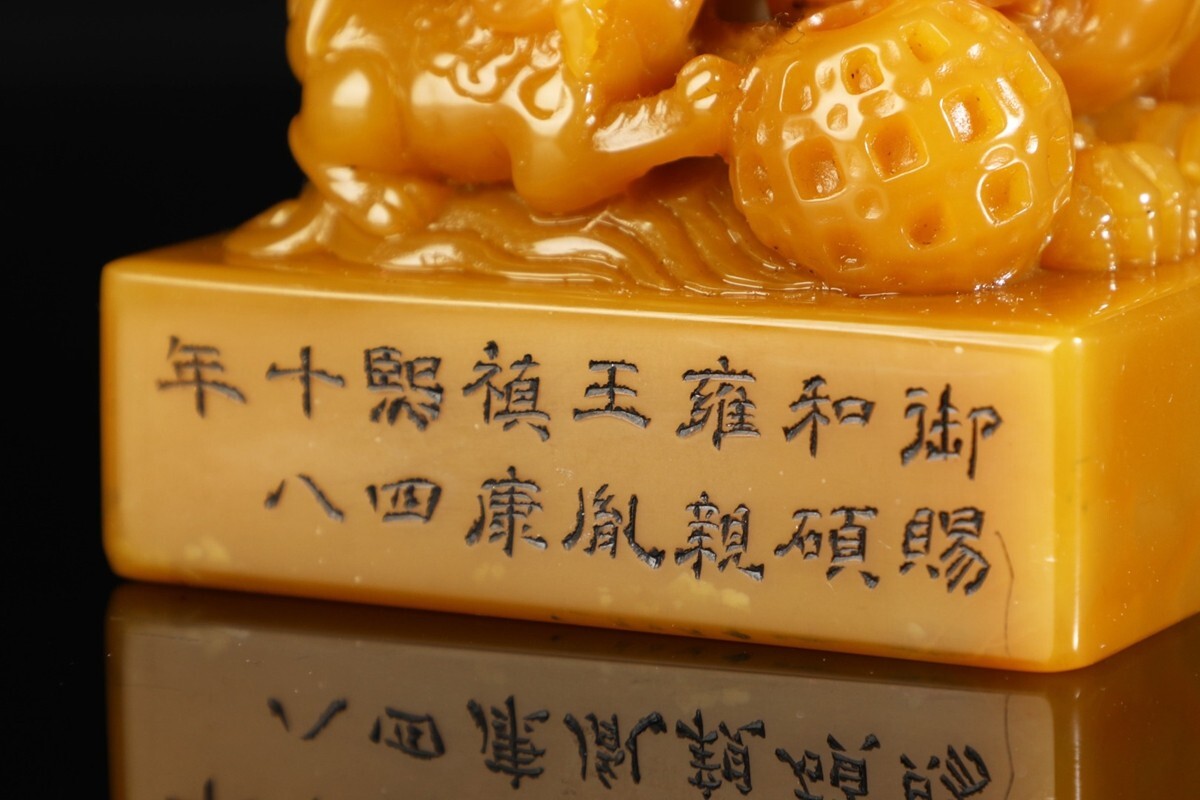 御賜
和碩
雍親
王胤
禛康
熙四
十八
年